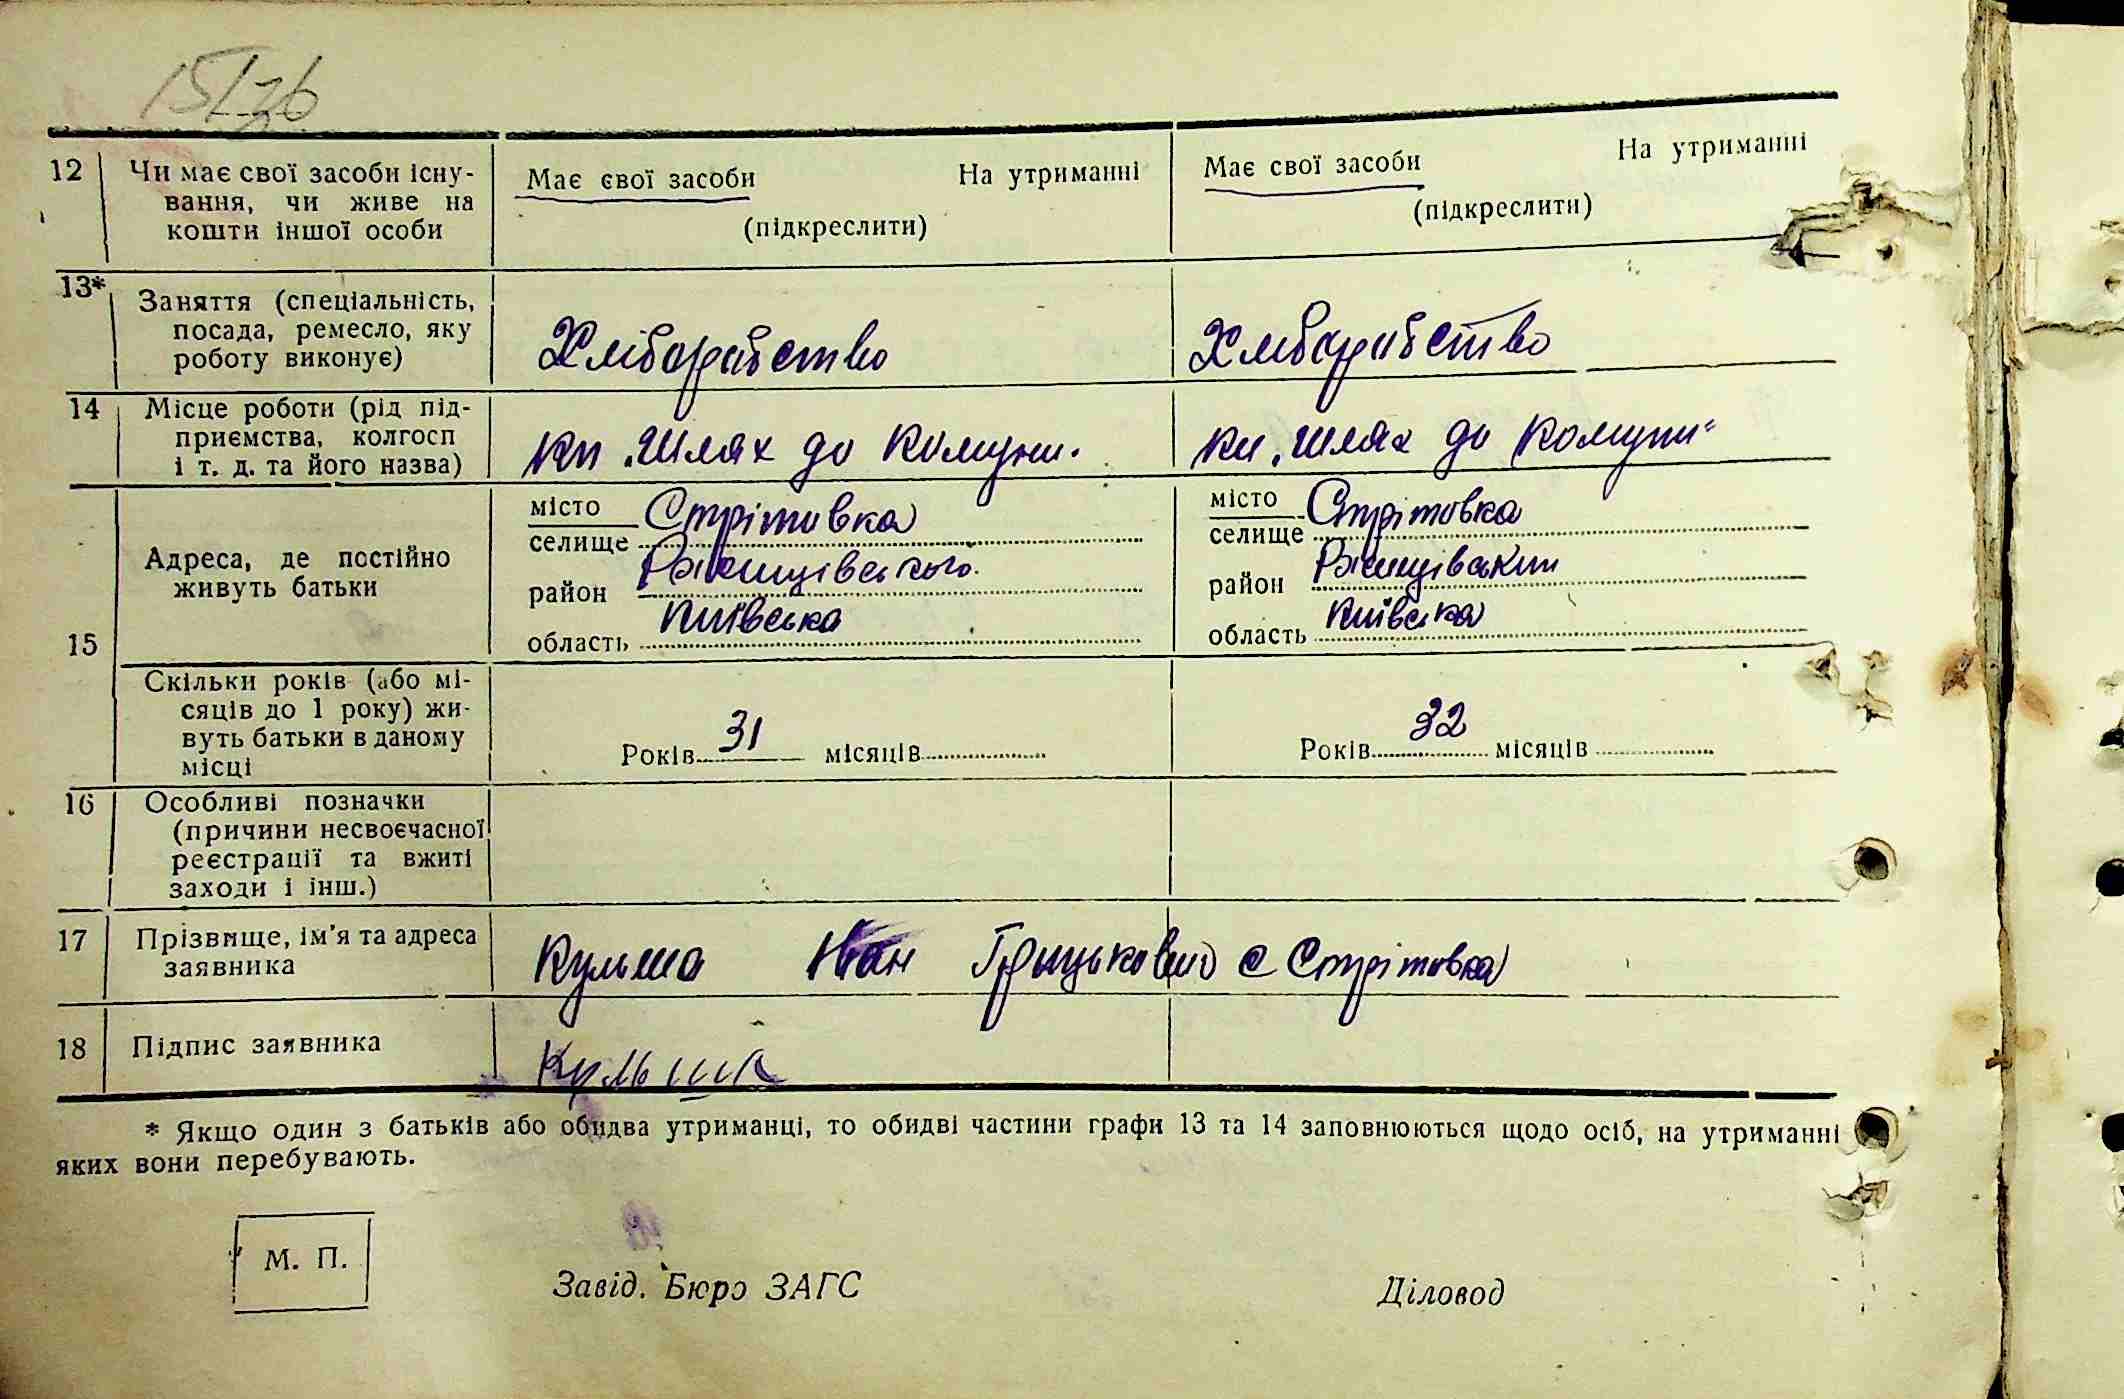 15/26
12 Чи має свої засоби існу-
вання, чи живе на
кошти іншої особи
Має свої засоби На утриманні
(підкреслити)
Має свої засоби На утриманні
(підкреслити)
13* Заняття (спеціальність,
посада, ремесло, яку
роботу виконує)
Хліборобство
Хліборобство
14 Місце роботи (рід під-
приємства, колгосп
і т. д. та його назва)
кп „Шлях до комуни"
кп „Шлях до комуни"
15 Адреса, де постійно
живуть батьки
місто
селище Стрітовка
район Ржищівського
область Київська
місто
селище Стрітовка
район Ржищівский
область Київська
Скільки років (або мі-
сяців до 1 року) жи-
вуть батьки в даному
місці
Років 31 місяців
Років 32 місяців
16 Особливі позначки
(причини несвоєчасної
реєстрації та вжиті
заходи і інш.)
17 Прізвище, ім'я та адреса
заявника
Кульша Іван Грицькович с Стрітовка
18 Підпис заявника
Кульша
* Якщо один з батьків або обидва утриманці, то обидві частини графи 13 та 14 заповнюються щодо осіб, на утриманні
яких вони перебувають.
М. П.
Завід. Бюро ЗАГС
Діловод